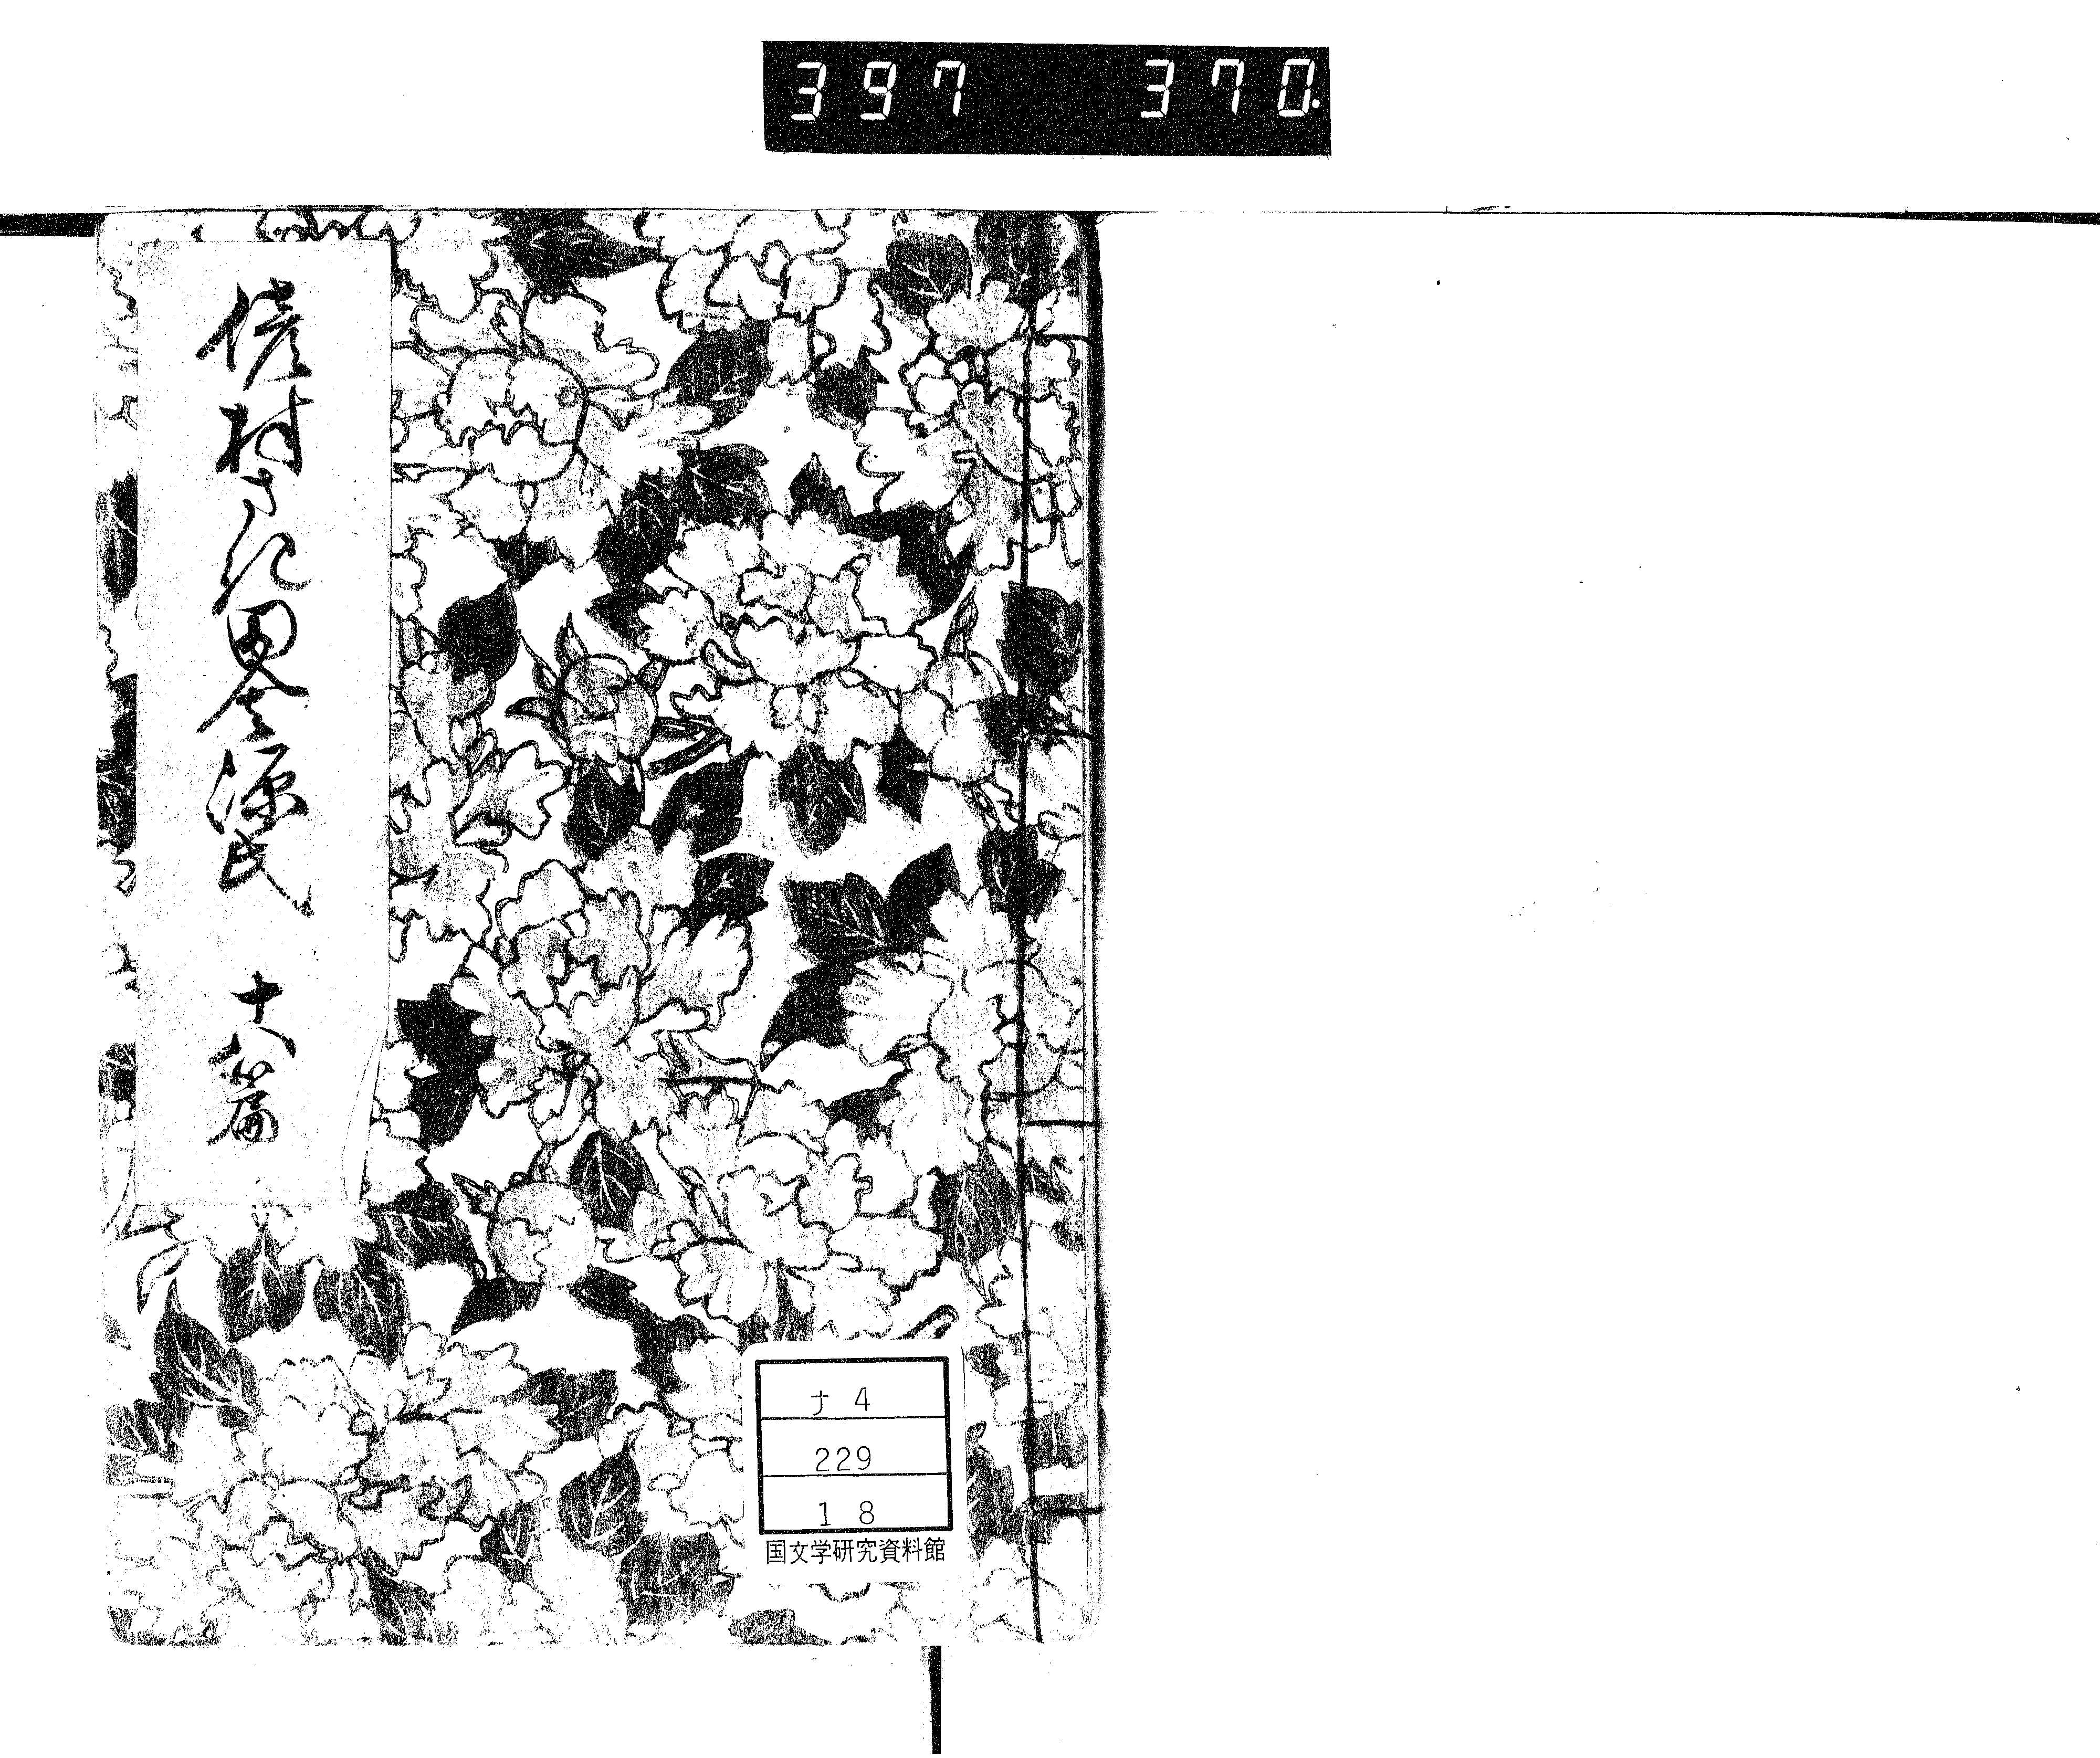 397 370.
偐村さ紀田舎源氏 十八篇
ナ 4
229
18
国文学研究資料館